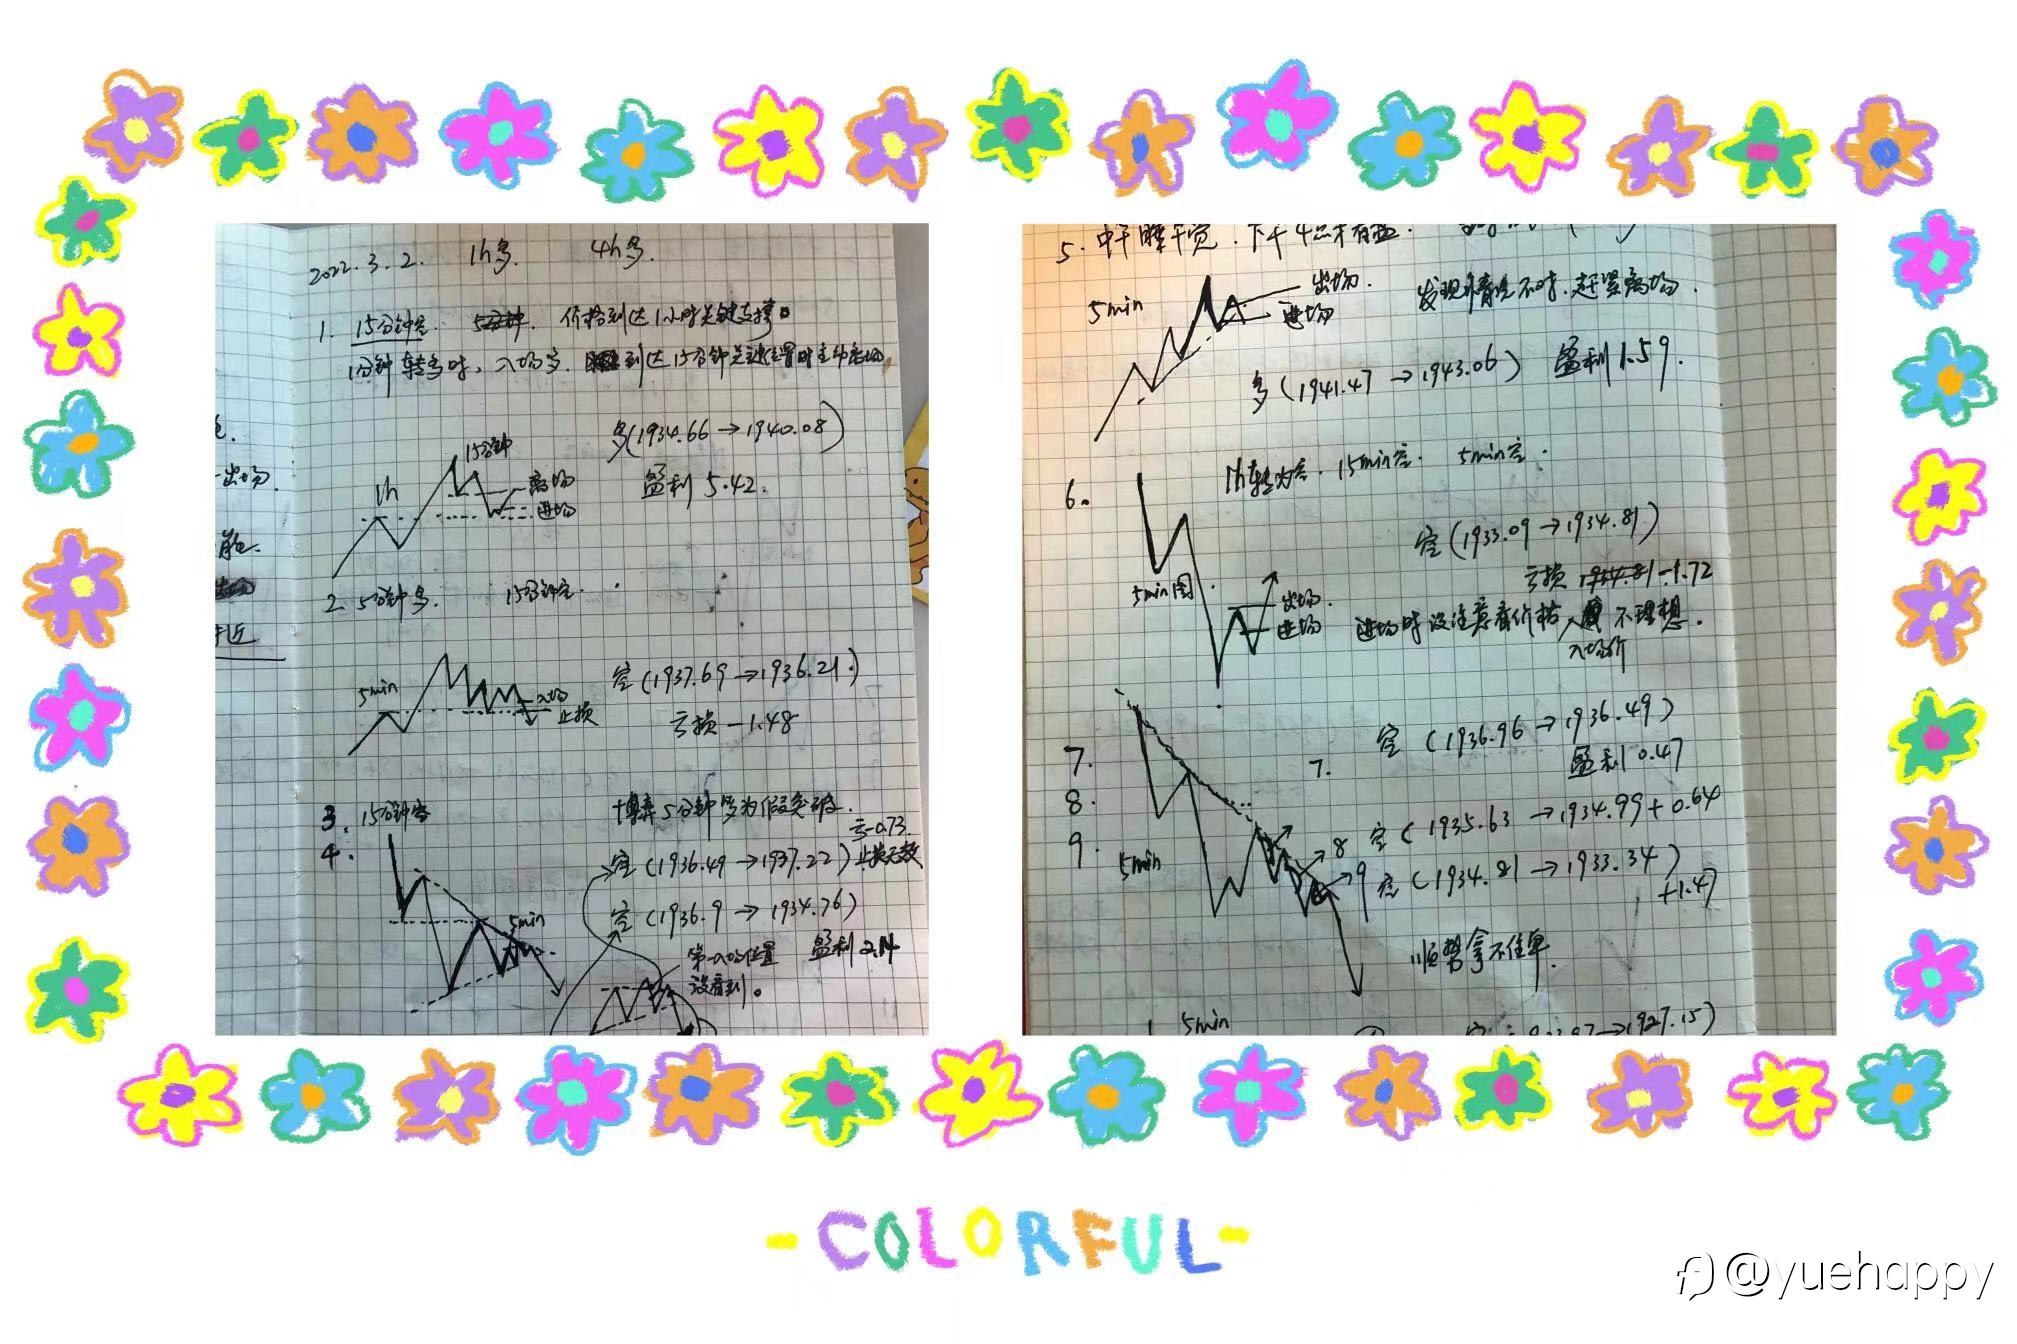 2022.3.2. 1h多. 4h多.
1. 15分钟空. 5分钟. 价格到达1小时关键支撑。
1分钟转多时, 入场多. 到达15分钟关键位置时主动离场
多(1934.66→1940.08)
盈利5.42.
15分钟
1h
离场
进场
2. 5分钟多. 15分钟空.
5min
入场
止损
空(1937.69→1936.21.)
亏损-1.48
3. 15分钟空
4.
博弈5分钟多为假突破.
空(1936.49→1937.22)
亏-0.73.
止损无效
空(1936.9→1934.76)
盈利2.14
5min
第一入场位置
没看到。
出场.
近
5. 中午睡午觉. 下午4点才有
5min
出场.
进场
发现情况不对. 赶紧离场.
多(1941.47→1943.06) 盈利1.59.
6. 1h转为空. 15min空. 5min空.
空(1933.09→1934.81)
亏损 1934.81 -1.72
5min图.
出场.
进场
进场时没注意看价格 入 不理想.
入场价
7.
8.
9.
5min
7. 空(1936.96→1936.49)
盈利0.47
8 空(1935.63→1934.99+0.64
9 空(1934.81→1933.34)
+1.47
顺势拿不住单.
5min
→1927.15)
-COLORFUL-
@yuehappy